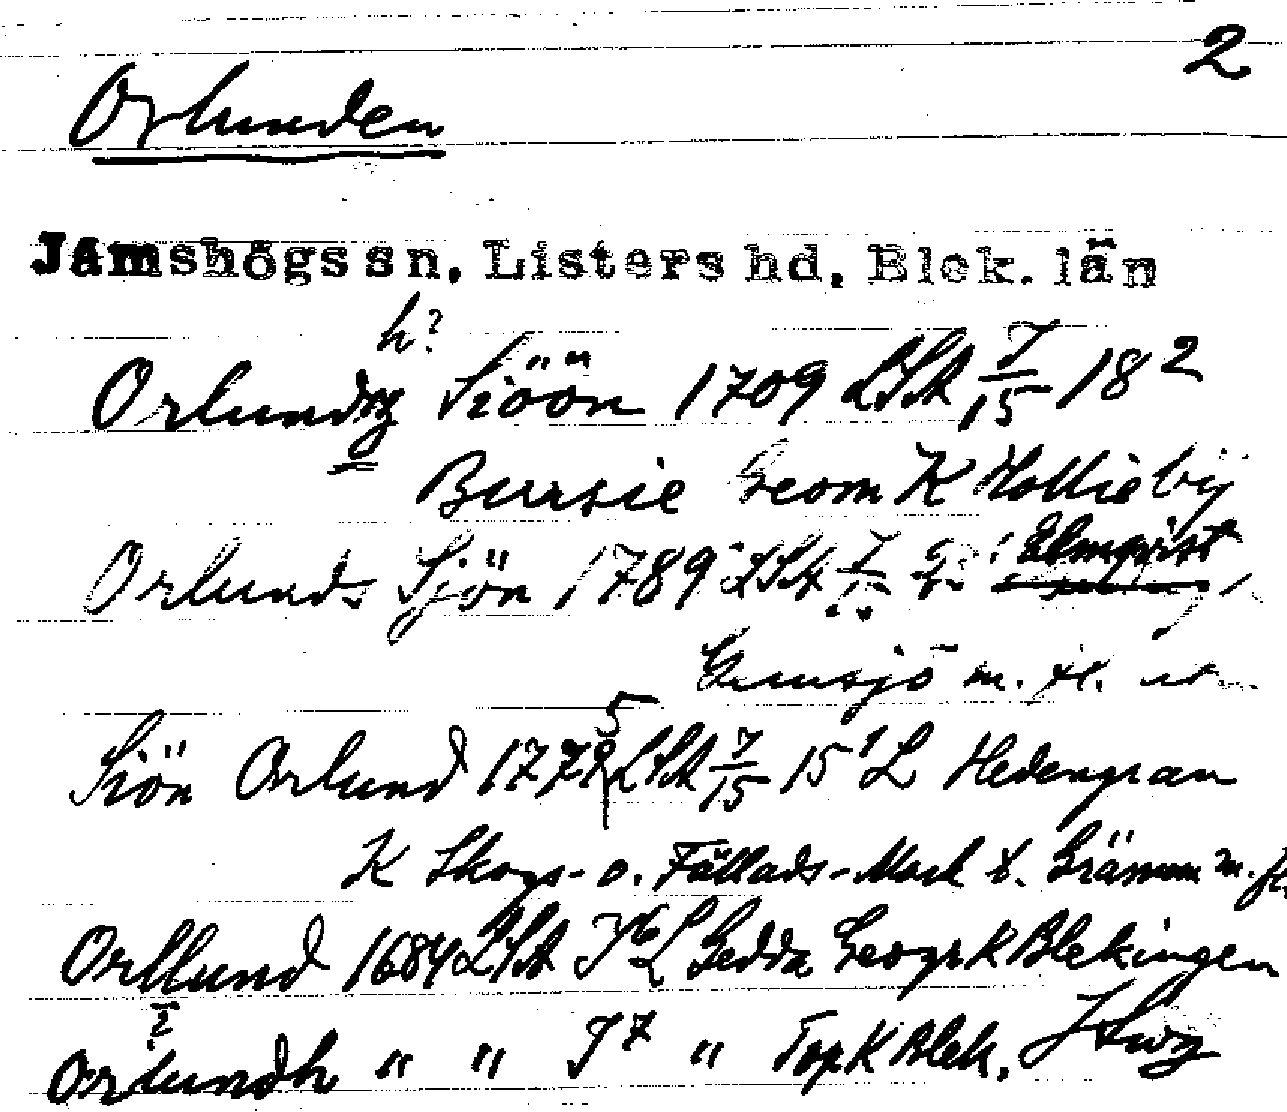 2
Orlunden
Jämshögs sn, Listers hd, Blek. län
h?
Orlundz Siöön 1709 LSA 7/15 18²
Bursie Geom K Holliebÿ
Orlunds Sjön 1789 LSA 7 Elmqvist
Grimsjö m. fl.
5
Siön Orlund 1772 LSA 7/15 15¹ L Hedengran
K Skogs- o. Fällads-Mark t. Gränum m. fl.
Orllund 1684 LSA J⁶ L Gedda Geogr K Blekingen
Orlundh " " J⁷ " Top K Blek.